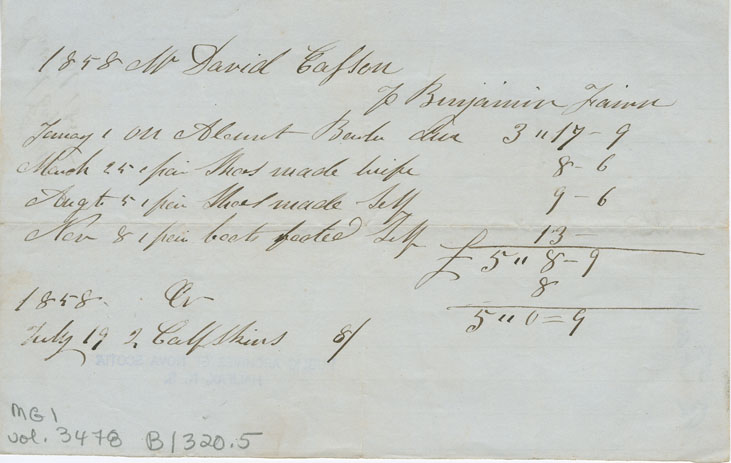 1858 Mr David Casson
To Benjamin Fairn
Janay 1 on Acount Book Due 3 " 17 - 9
March 25 1 pair Shoes made wife 8 - 6
Augt 5 1 pair Shoes made Self 9 - 6
Nov 8 1 pair boots footed Self 13 -
£ 5 " 8 - 9
8
5 " 0 = 9
1858 Cr
July 19 2 Calf Skins 8/
NOVA SCOTIA
HALIFAX, N. S.
MG1
vol. 3478 B1320.5